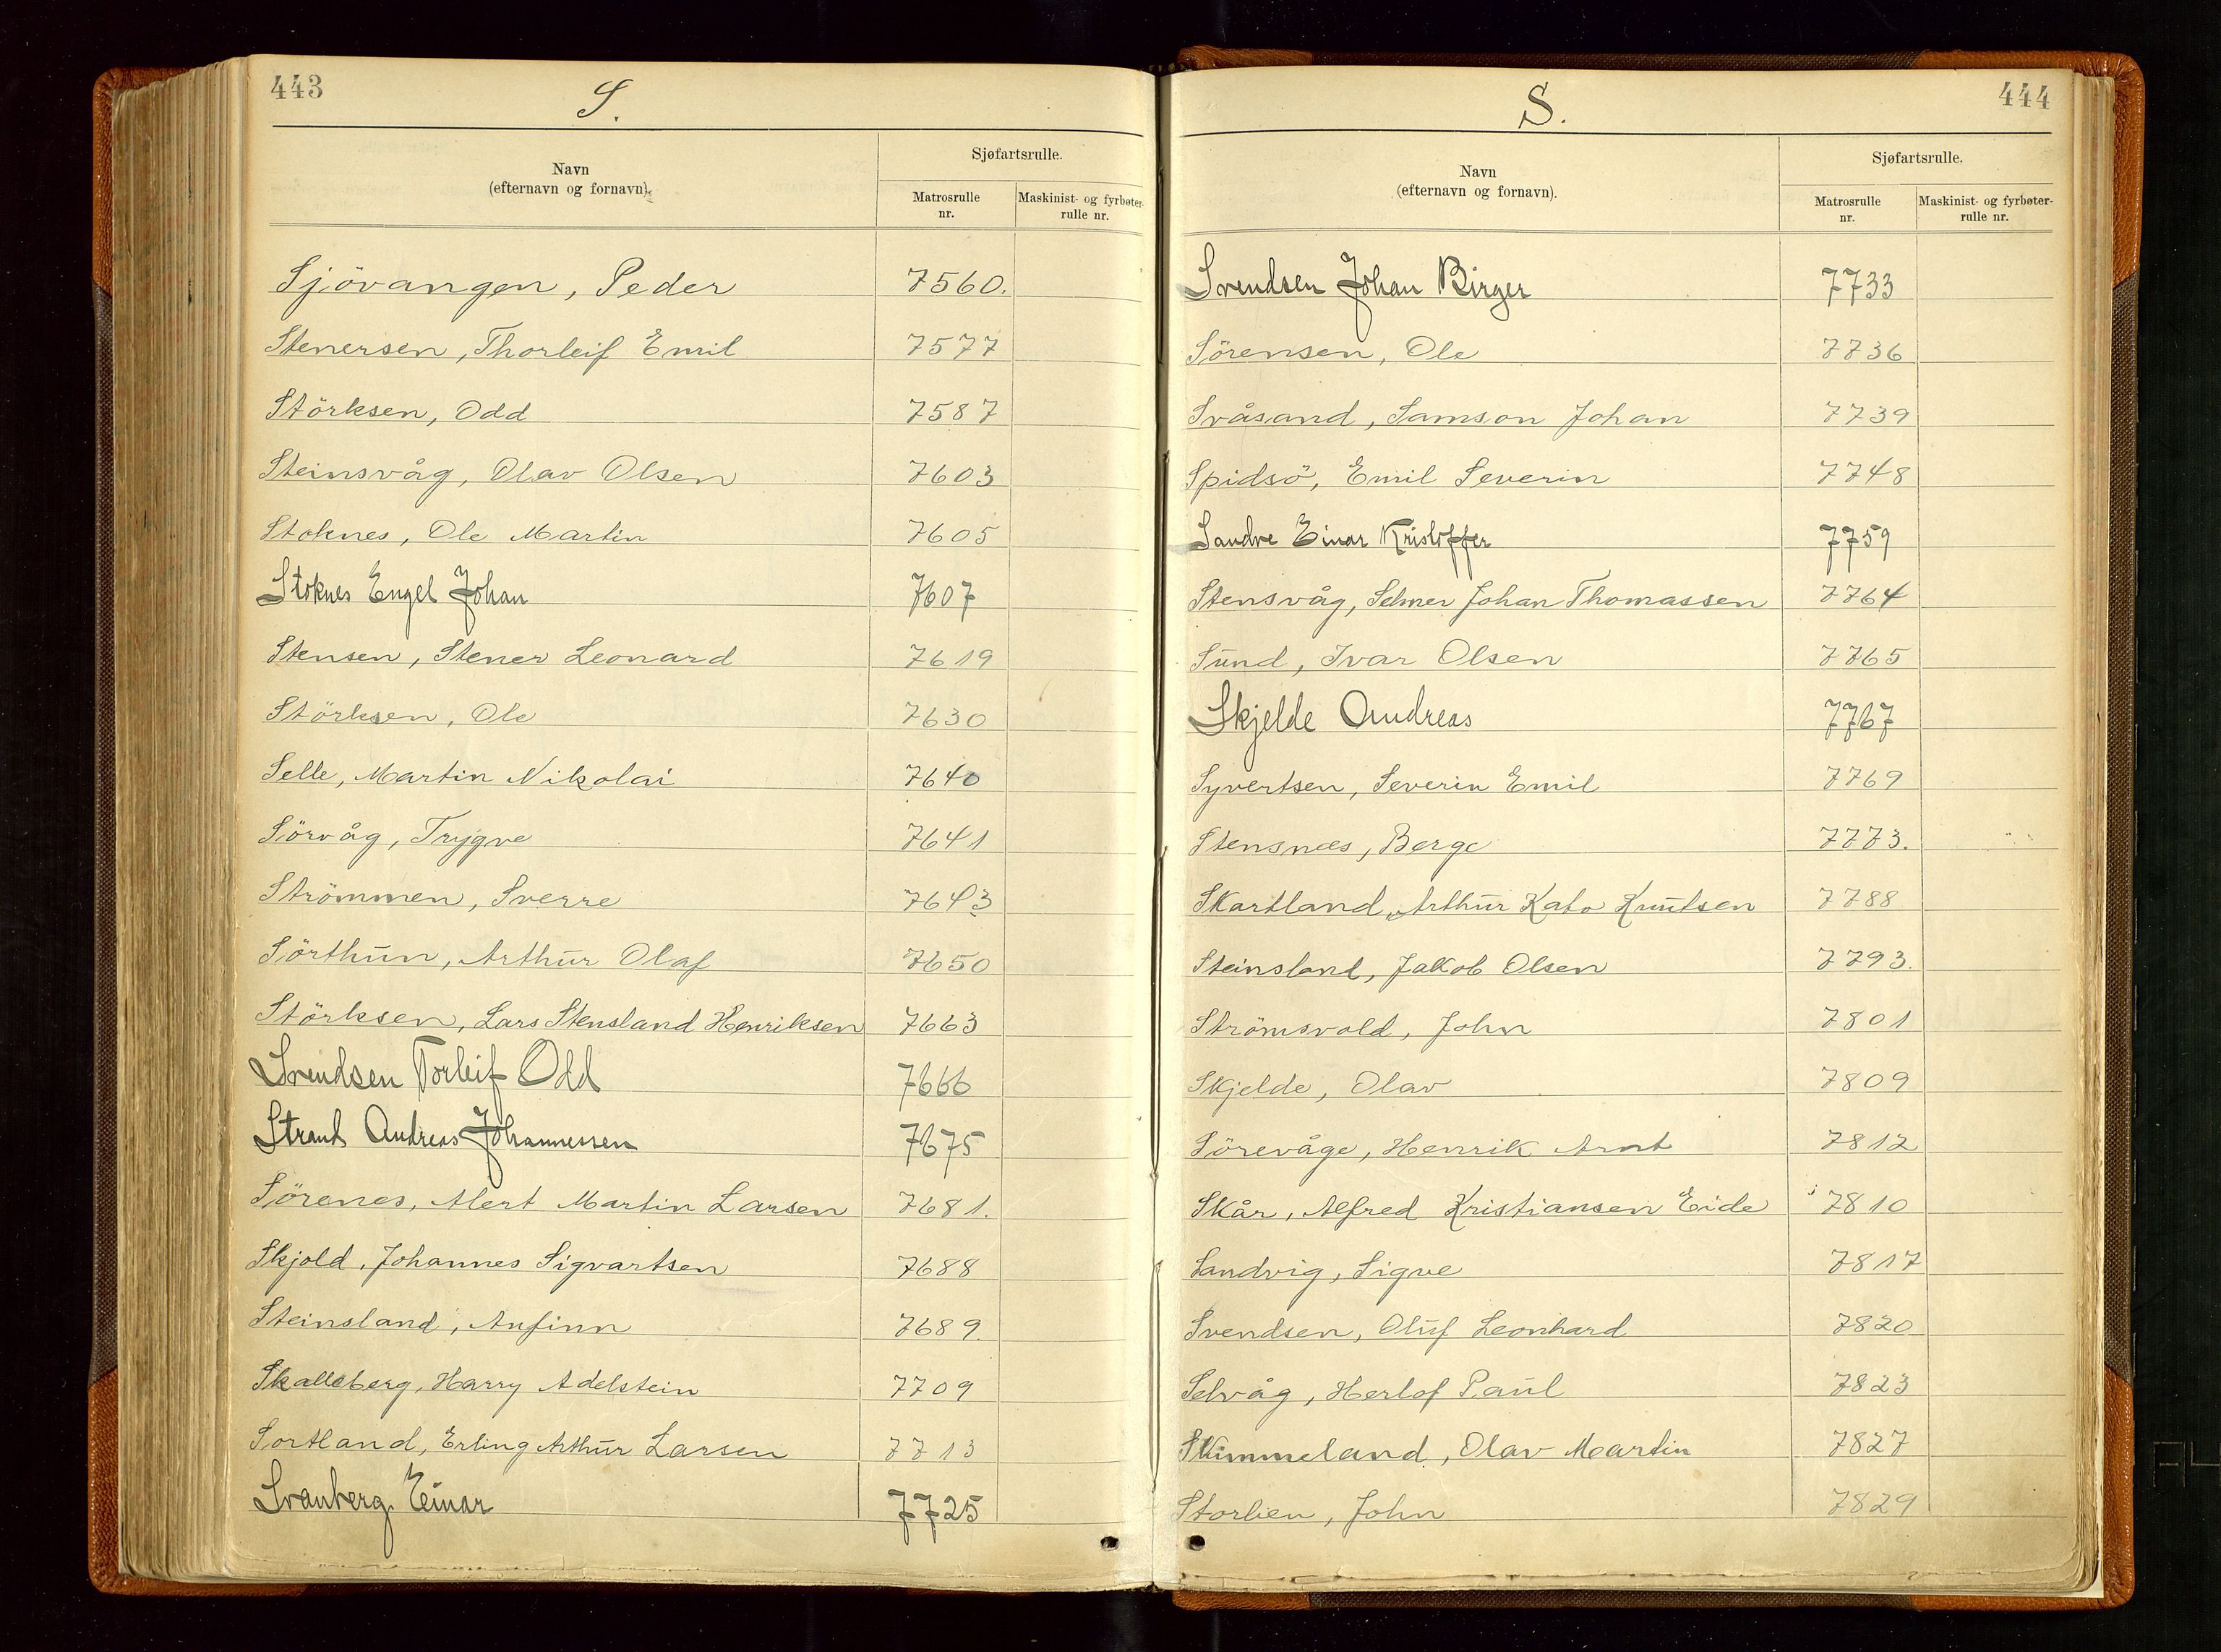 443
S.
Navn
(efternavn og fornavn).
Sjøfartsrulle.
Matrosrulle nr.
Maskinist- og fyrbøter-rulle nr.
Sjövangen, Peder 7560.
Stenersen, Thorleif Emil 7577
Störksen, Odd 7587
Steinsvåg, Olav Olsen 7603
Stoknes, Ole Martin 7605
Stoknes Engel Johan 7607
Stensen, Stener Leonard 7619
Störksen, Ole 7630
Selle, Martin Nikolai 7640
Sörvåg, Trygve 7641
Strömmen, Sverre 7643
Sörthun, Arthur Olaf 7650
Störksen, Lars Stensland Henriksen 7663
Svendsen Torleif Odd 7666
Strand Andreas Johannessen 7675
Sörenes, Alert Martin Larsen 7681.
Skjold, Johannes Sigvartsen 7688
Steinsland, Anfinn 7689.
Skalleberg, Harry Adelstein 7709
Sortland, Erling Arthur Larsen 7713
Svanberg Einar 7725
444
S.
Navn
(efternavn og fornavn).
Sjøfartsrulle.
Matrosrulle nr.
Maskinist- og fyrbøter-rulle nr.
Svendsen Johan Birger 7733
Sörensen, Ole 7736
Svåsand, Samson Johan 7739
Spidsö, Emil Severin 7748
Sandve Einar Kristoffer 7759
Stensvåg, Selmer Johan Thomassen 7764
Sund, Ivar Olsen 7765
Skjelde Andreas 7767
Syvertsen, Severin Emil 7769
Stensnæs, Berge 7773.
Skartland, Arthur Kato Knutsen 7788
Steinsland, Jakob Olsen 7793.
Strömsvold, John 7801
Skjelde, Olav 7809
Sörevåge, Henrik Arnt 7812
Skår, Alfred Kristiansen Eide 7810
Sandvig, Sigve 7817
Svendsen, Oluf Leonhard 7820
Selvåg, Herlof Paul 7823
Skimmeland, Olav Martin 7827
Storlien, John 7829